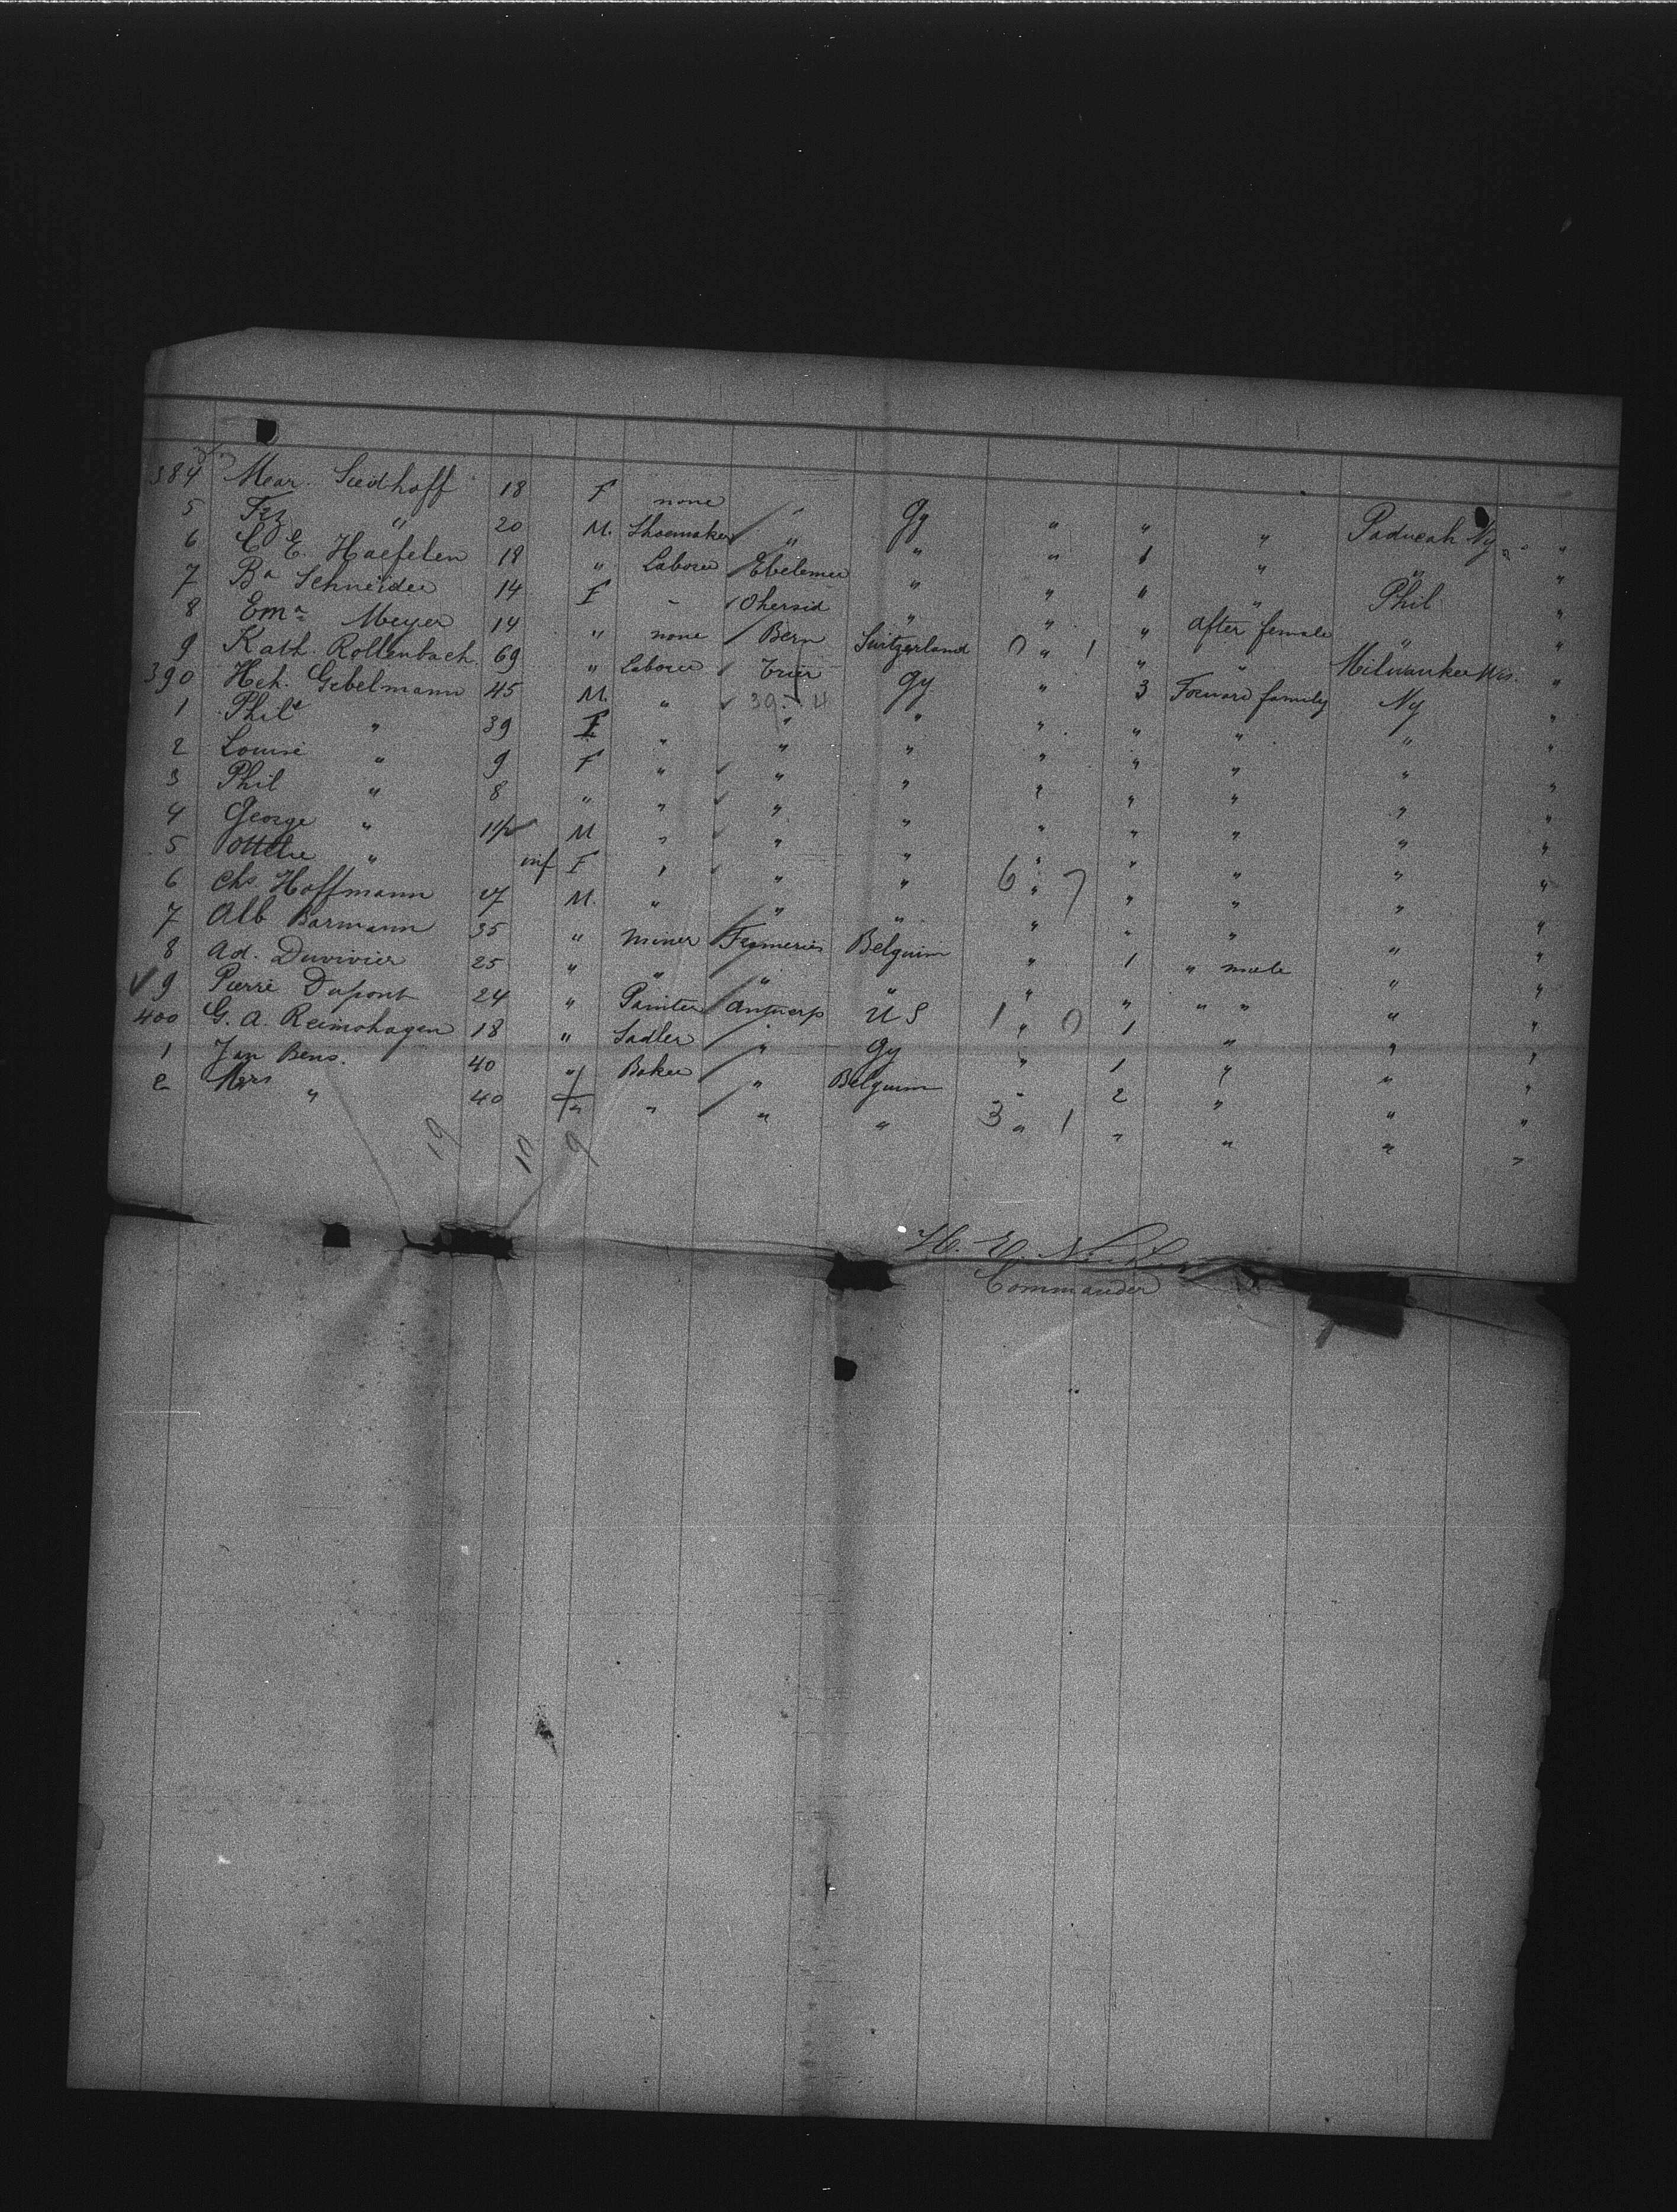 384 Mear. Siedhoff 18 F none " Gy " " " Paducah Ky "
5 Frz " 20 M. Shoemaker " " " 1 " " "
6 C. E. Haefelen 18 " Laborer Ebelemer " " " " Phil "
7 Ba Schneider 14 F " Ohersid " " " after female " "
8 Ema Meyer 14 " none Bern Switzerland 0 " 1 " " Milwaukee Wis. "
9 Kath. Rollenbach 69 " Laborer Trier Gy " 3 Forward family Ny "
390 Hch. Gebelmann 45 M. " 39 - 4 " " " " " "
1 Phile " 39 F " " " " " " " "
2 Louise " 9 F " " " " " " " "
3 Phil " 8 " " " " " " " " "
4 George " 11/2 M " " " " " " " "
5 Ottelie " inf F " " " 6 " 7 " " " "
6 Chs. Hoffmann 47 M. " " " " " " " "
7 Alb Barmann 35 " Miner Frameries Belguim " 1 " male " "
8 Ad. Duvivier 25 " " " " " " " " " "
9 Pierre Dupont 24 " Painter Antwerp U S 1 " 0 1 " " "
400 G. A. Reimshagen 18 " Sadler " Gy " 1 " " "
1 Jan Bens. 40 " Baker " Belguim " 2 " " "
2 Mrs " 40 F " " " 3 " 1 " " " "
19 10 9
H. E.
Commander